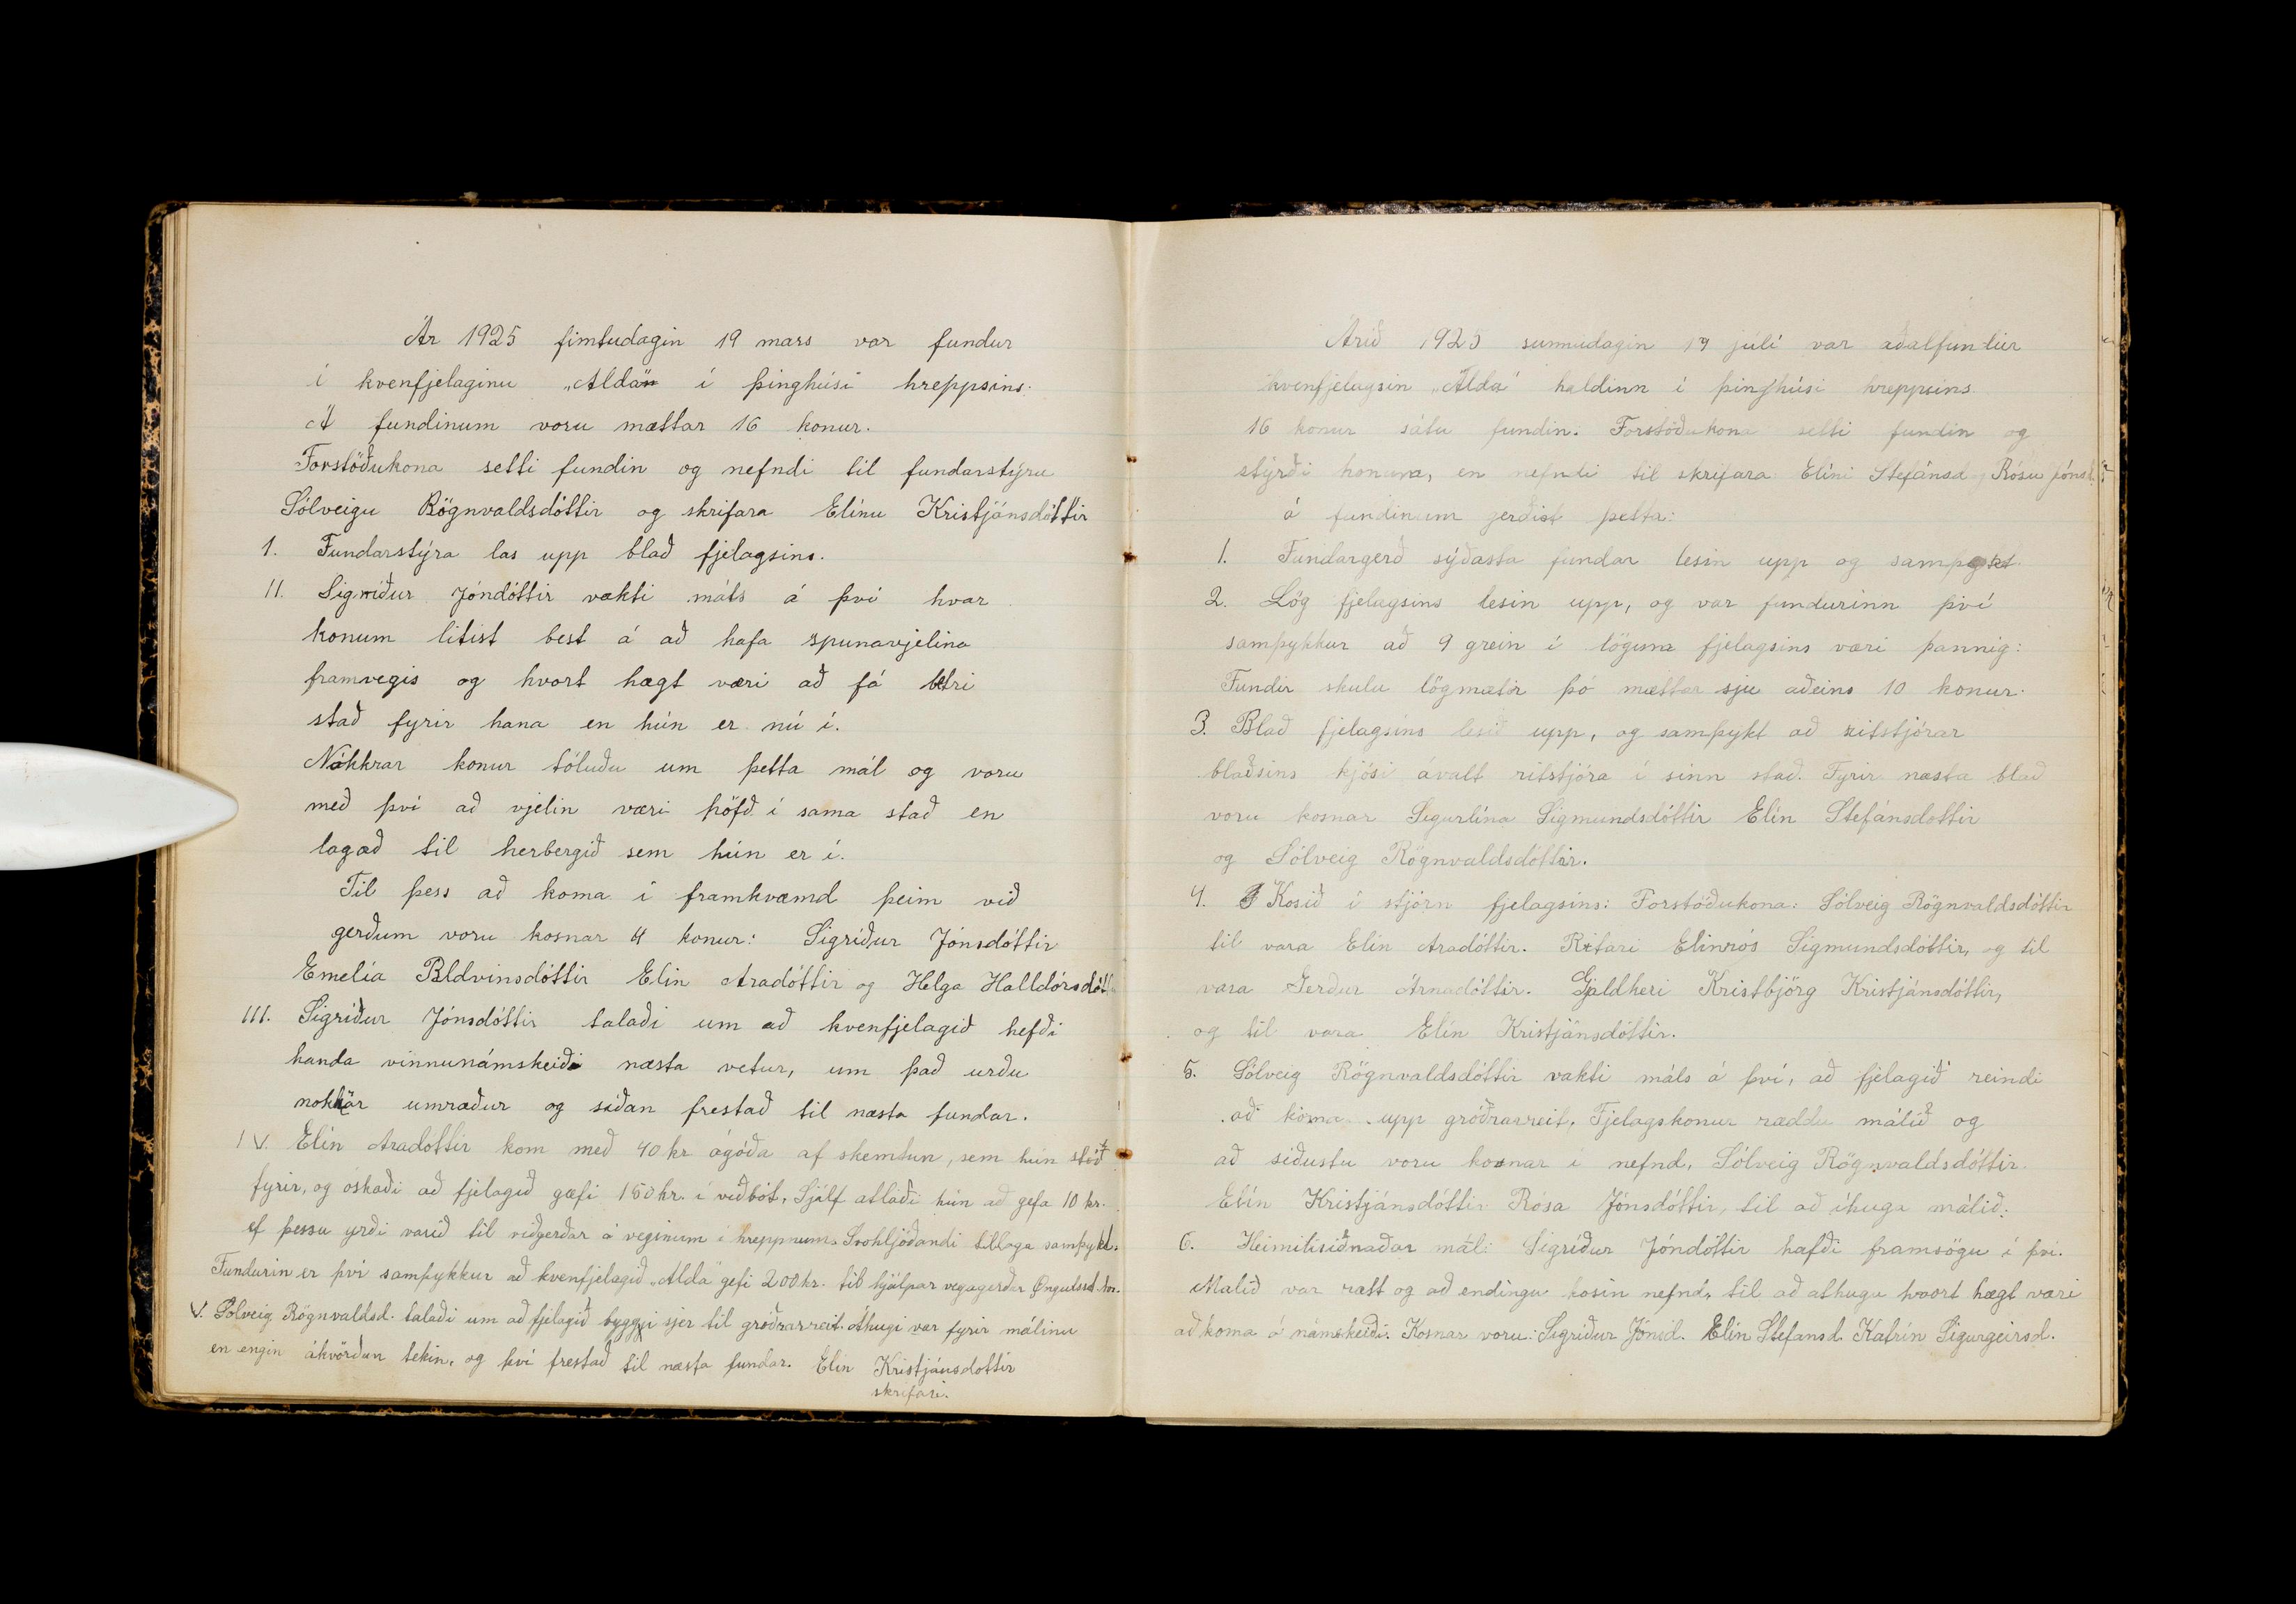 Ár 1925 fimtudagin 19 mars var fundur
í kvenfjelaginu „Aldan" í þinghúsi hreppsins.
Á fundinum voru mættar 16 konur.
Forstöðukona setti fundin og nefndi til fundarstýru
Sólveigu Rögnvaldsdóttir og skrifara Elínu Kristjánsdóttir
1. Fundarstýra las upp blað fjelagsins.
II. Sigríður Jóndóttir vakti máls á því hvar
konum litist best á að hafa spunavjelina
framvegis og hvort hægt væri að fá betri
stað fyrir hana en hún er nú í.
Nokkrar konur töluðu um þetta mál og voru
með því að vjelin væri höfð í sama stað en
lagað til herbergið sem hún er í.
Til þess að koma í framkvæmd þeim við
gerðum voru kosnar 4 konur: Sigríður Jónsdóttir
Emelía Bldvinsdóttir Elin Aradóttir og Helga Halldórsdótt
III. Sigríður Jónsdóttir talaði um að kvenfjelagið hefði
handa vinnunámskeiði næsta vetur, um það urðu
nokkar umræður og síðan frestað til næsta fundar.
IV. Elín Aradottir kom með 40 kr ágóða af skemtun, sem hún stóð
fyrir, og óskaði að fjelagið gæfi 150 kr. í viðbót, Sjálf atlaði hún að gefa 10 kr.
ef þessu yrði varið til viðgerðar á veginum í hreppnum. Svohljóðandi tillaga samþykt.
Fundurin er því samþykkur að kvenfjelagið „Alda" gefi 200 kr. til hjálpar vegagerðar Öngulsst. hr.
V. Sólveig Rögnvaldsd. talaði um að fjelagið byggji sjer til gróðrarreit. Áhugi var fyrir málinu
en engin ákvörðun tekin, og því frestað til næsta fundar. Elin Kristjánsdottir
skrifari.
Árið 1925 sunnudagin 19 júlí var aðalfundur
kvenfjelagsin „Alda" haldinn í þinghúsi hreppsins
16 konur sátu fundin. Forstöðukona setti fundin og
stýrði honum, en nefndi til skrifara Elíni Stefánsd og Rósu Jónsd.
á fundinum gerðist þetta:
1. Fundargerð sýðasta fundar lesin upp og samþykt.
2. Lög fjelagsins lesin upp, og var fundurinn því
samþykkur að 9 grein í lögum fjelagsins væri þannig:
Fundir skulu lögmætir þó mættar sju aðeins 10 konur.
3. Blað fjelagsins lesið upp, og samþykt að ritstjórar
blaðsins kjósi ávalt ritstjóra í sinn stað. Fyrir næsta blað
voru kosnar Sigurlína Sigmundsdóttir Elín Stefánsdottir
og Sólveig Rögnvaldsdóttir.
4. Kosið í stjórn fjelagsins: Forstöðukona: Sólveig Rögnvaldsdóttir
til vara Elín Aradóttir. Ritari Elinrós Sigmundsdóttir, og til
vara Gerður Árnadóttir. Gjaldkeri Kristbjörg Kristjánsdóttir,
og til vara Elín Kristjánsdóttir.
5. Sólveig Rögnvaldsdóttir vakti máls á því, að fjelagið reindi
að koma upp gróðrarreit. Fjelagskonur ræddu málið og
að síðustu voru kosnar í nefnd, Sólveig Rögnvaldsdóttir.
Elín Kristjánsdóttir Rósa Jónsdóttir, til að íhuga málið.
6. Heimilisiðnaðar mál: Sigríður Jóndóttir hafði framsögu í því.
Malið var rætt og að endingu kosin nefnd, til að athuga hvort hægt væri
að koma á námskeiði. Kosnar voru: Sigríður Jónsd. Elín Stefansd. Katrín Sigurgeirsd.